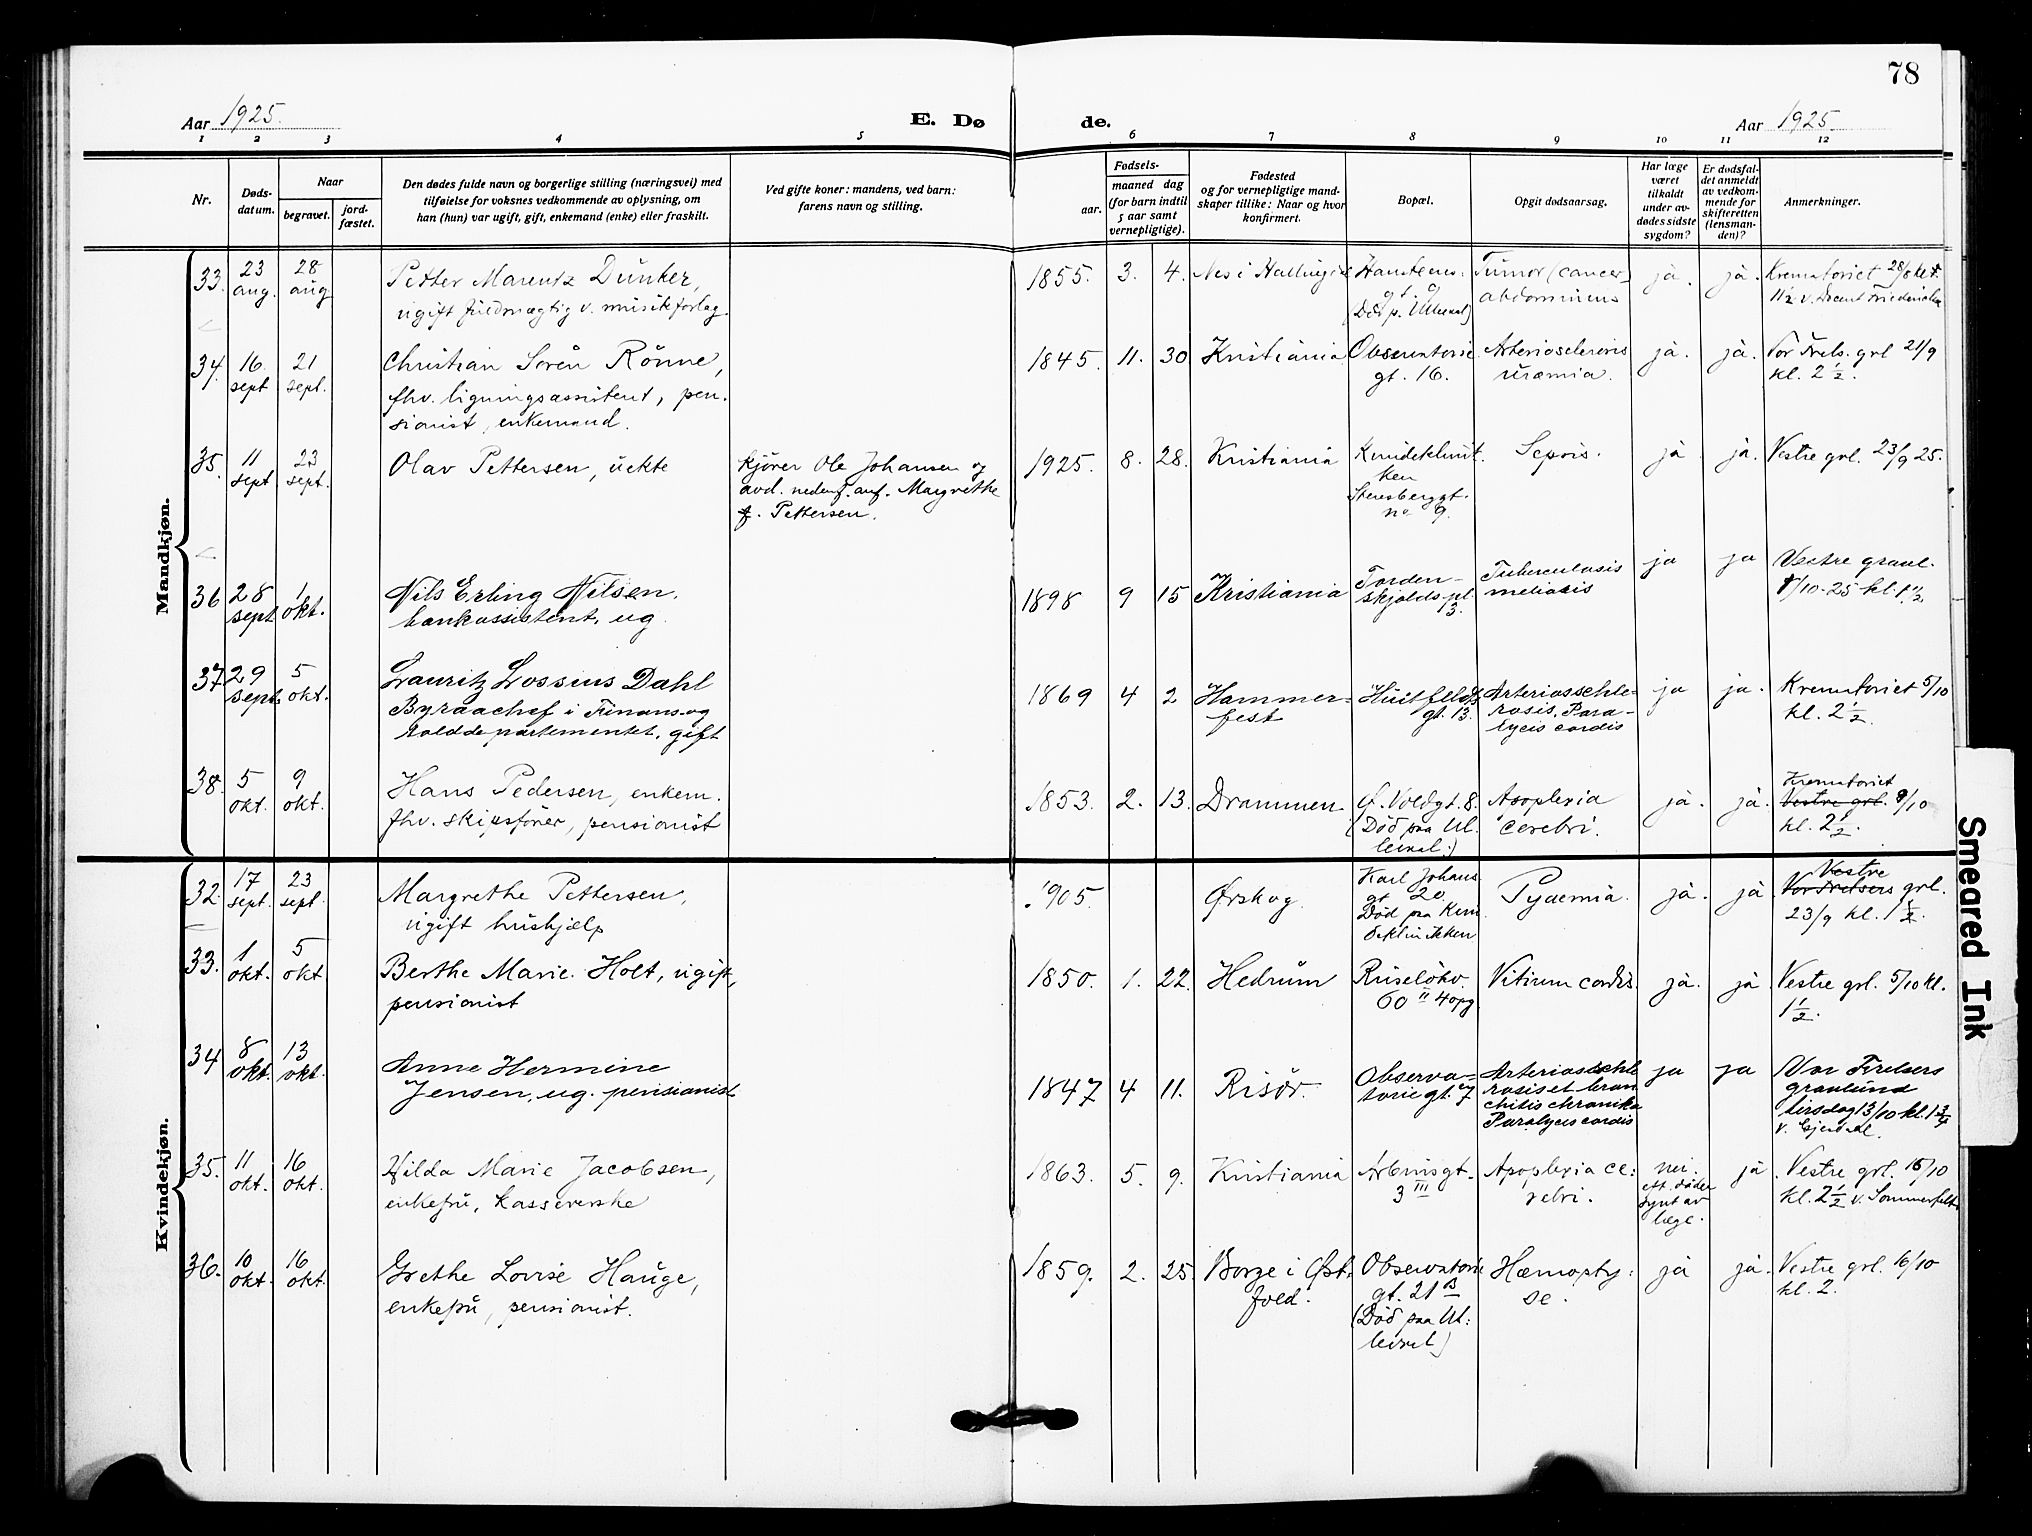 78
Aar 1925.
E. Dø
de.
Aar 1925.
1 2 3 4 5 6 7 8 9 10 11 12
Nr.
Døds-
datum.
Naar
begravet.
jord-
fæstet.
Den dødes fulde navn og borgerlige stilling (næringsvei) med
tilføielse for voksnes vedkommende av oplysning, om
han (hun) var ugift, gift, enkemand (enke) eller fraskilt.
Ved gifte koner: mandens, ved barn:
farens navn og stilling.
Fødsels-
aar.
maaned dag
(for barn indtil
5 aar samt
vernepligtige).
Fødested
og for vernepligtige mand-
skaper tillike: Naar og hvor
konfirmert.
Bopæl.
Opgit dødsaarsag.
Har læge
været
tilkaldt
under av-
dødes sidste
sygdom?
Er dødsfal-
det anmeldt
av vedkom-
mende for
skifteretten
(lensman-
den)?
Anmerkninger.
Mandkjøn.
33.
23
aug.
28
aug
Petter Marentz Dunker,
ugift fuldmægtig v. musikforlag.
1855. 3. 4.
Nes i Hallingd
Hanstens:
gt.
(Død p. Ullevaal)
Tumor (cancer)
abdominens
ja.
ja.
Krematoriet 28/8 kl.
11½ v. Docent
34.
16
sept
21
sept.
Christian Soren Rönne,
fhv. ligningsassistent, pen.
sionist, enkemand.
1845. 11. 30
Kristiania
Observatorie
gt. 16.
Arteriosclerosis
uræmia.
ja.
ja.
Vor Frels. grl 21/9
kl. 2½.
35.
11
sept
23
sept.
Olav Pettersen, uekte
kjører Ole Johansen og
avd. nedenf. anf. Margrethe
f. Pettersen.
1925. 8. 28.
Kristiania
Kvindeklini
ken
Stensberggt.
no 9.
Sepsis.
ja
ja.
Vestre grl. 23/9 25.
36
28
sept
1
okt.
Nils Erling Nilsen.
bankassistent, ug.
1898 9 15
Kristiania
Torden-
skjolds pl.
13.
Tuberculosis
meliasis
ja
ja
Vestre gravl.
1/10-25 kl. 1½
37
29
sept.
5
okt.
Lauritz Lossius Dahl
Byraachef i Finans-og
tolddepartementet, gift
1869 4 2
Hammer-
fest
Huitfeldts
gt. 13.
Arteriosschle-
rosis, Para-
lycis cordis
ja
ja.
Krematoriet 5/10
kl. 2½.
38.
5
okt.
9
okt.
Hans Pedersen, enkem.
fhv. skipsfører, pensionist
1853. 2. 13.
Drammen
Ø. Voldgt. 8.
(Død paa Ul.
levaal.)
Apoplexia
cerebri.
ja.
ja.
Krematoriet
Vestre grl. 9/10
kl. 2½.
Kvindekjøn.
32.
17
sept.
23
sept.
Margrethe Pettersen,
ugift hushjælp
1905.
Ørskog
Karl Johans
gt 20.
Død paa Kvin
deklinikken
Pyaemia.
ja.
ja
Vestre
Vor Frelsers grl.
23/9 kl. 1½.
33.
1
okt.
5
okt
Berthe Marie Holt, ugift,
pensionist
1850. 1. 22.
Hedrum
Ruseløkv.
60 II 4 opg.
Vitium cordis.
ja.
ja
Vestre grl. 5/10 kl.
1½.
34
8
okt.
13
okt.
Anne Hermine
Jensen, ug. pensionist
1847 4 11.
Risör.
Observa-
toriegt. 7
Arteriosschle
rosis et bron
chitis chronika
Paralycis cordis
ja
ja
Vor Frelsers
gravlund
tirsdag 13/10 kl. 1¾
35.
11
okt.
16
okt.
Hilda Marie Jacobsen,
enkefru, kassererske
1863. 5. 9.
Kristiania
Arbinsgt.
3 III
Apoplexia ce:
rebri.
nei.
ef. døden
synt av
læge.
ja
Vestre grl. 16/10
kl. 2½ v. Sommerfelt
36.
10
okt.
16
okt.
Grethe Lovise Hauge,
enkefru, pensionist.
1859. 2. 25.
Borge i Øst.
fold.
Observatorie
gt. 21 B
(Død paa Ul:
levaal)
Hæmopty:
se.
ja
ja.
Vestre grl. 16/10
kl. 2.
Smeared Ink